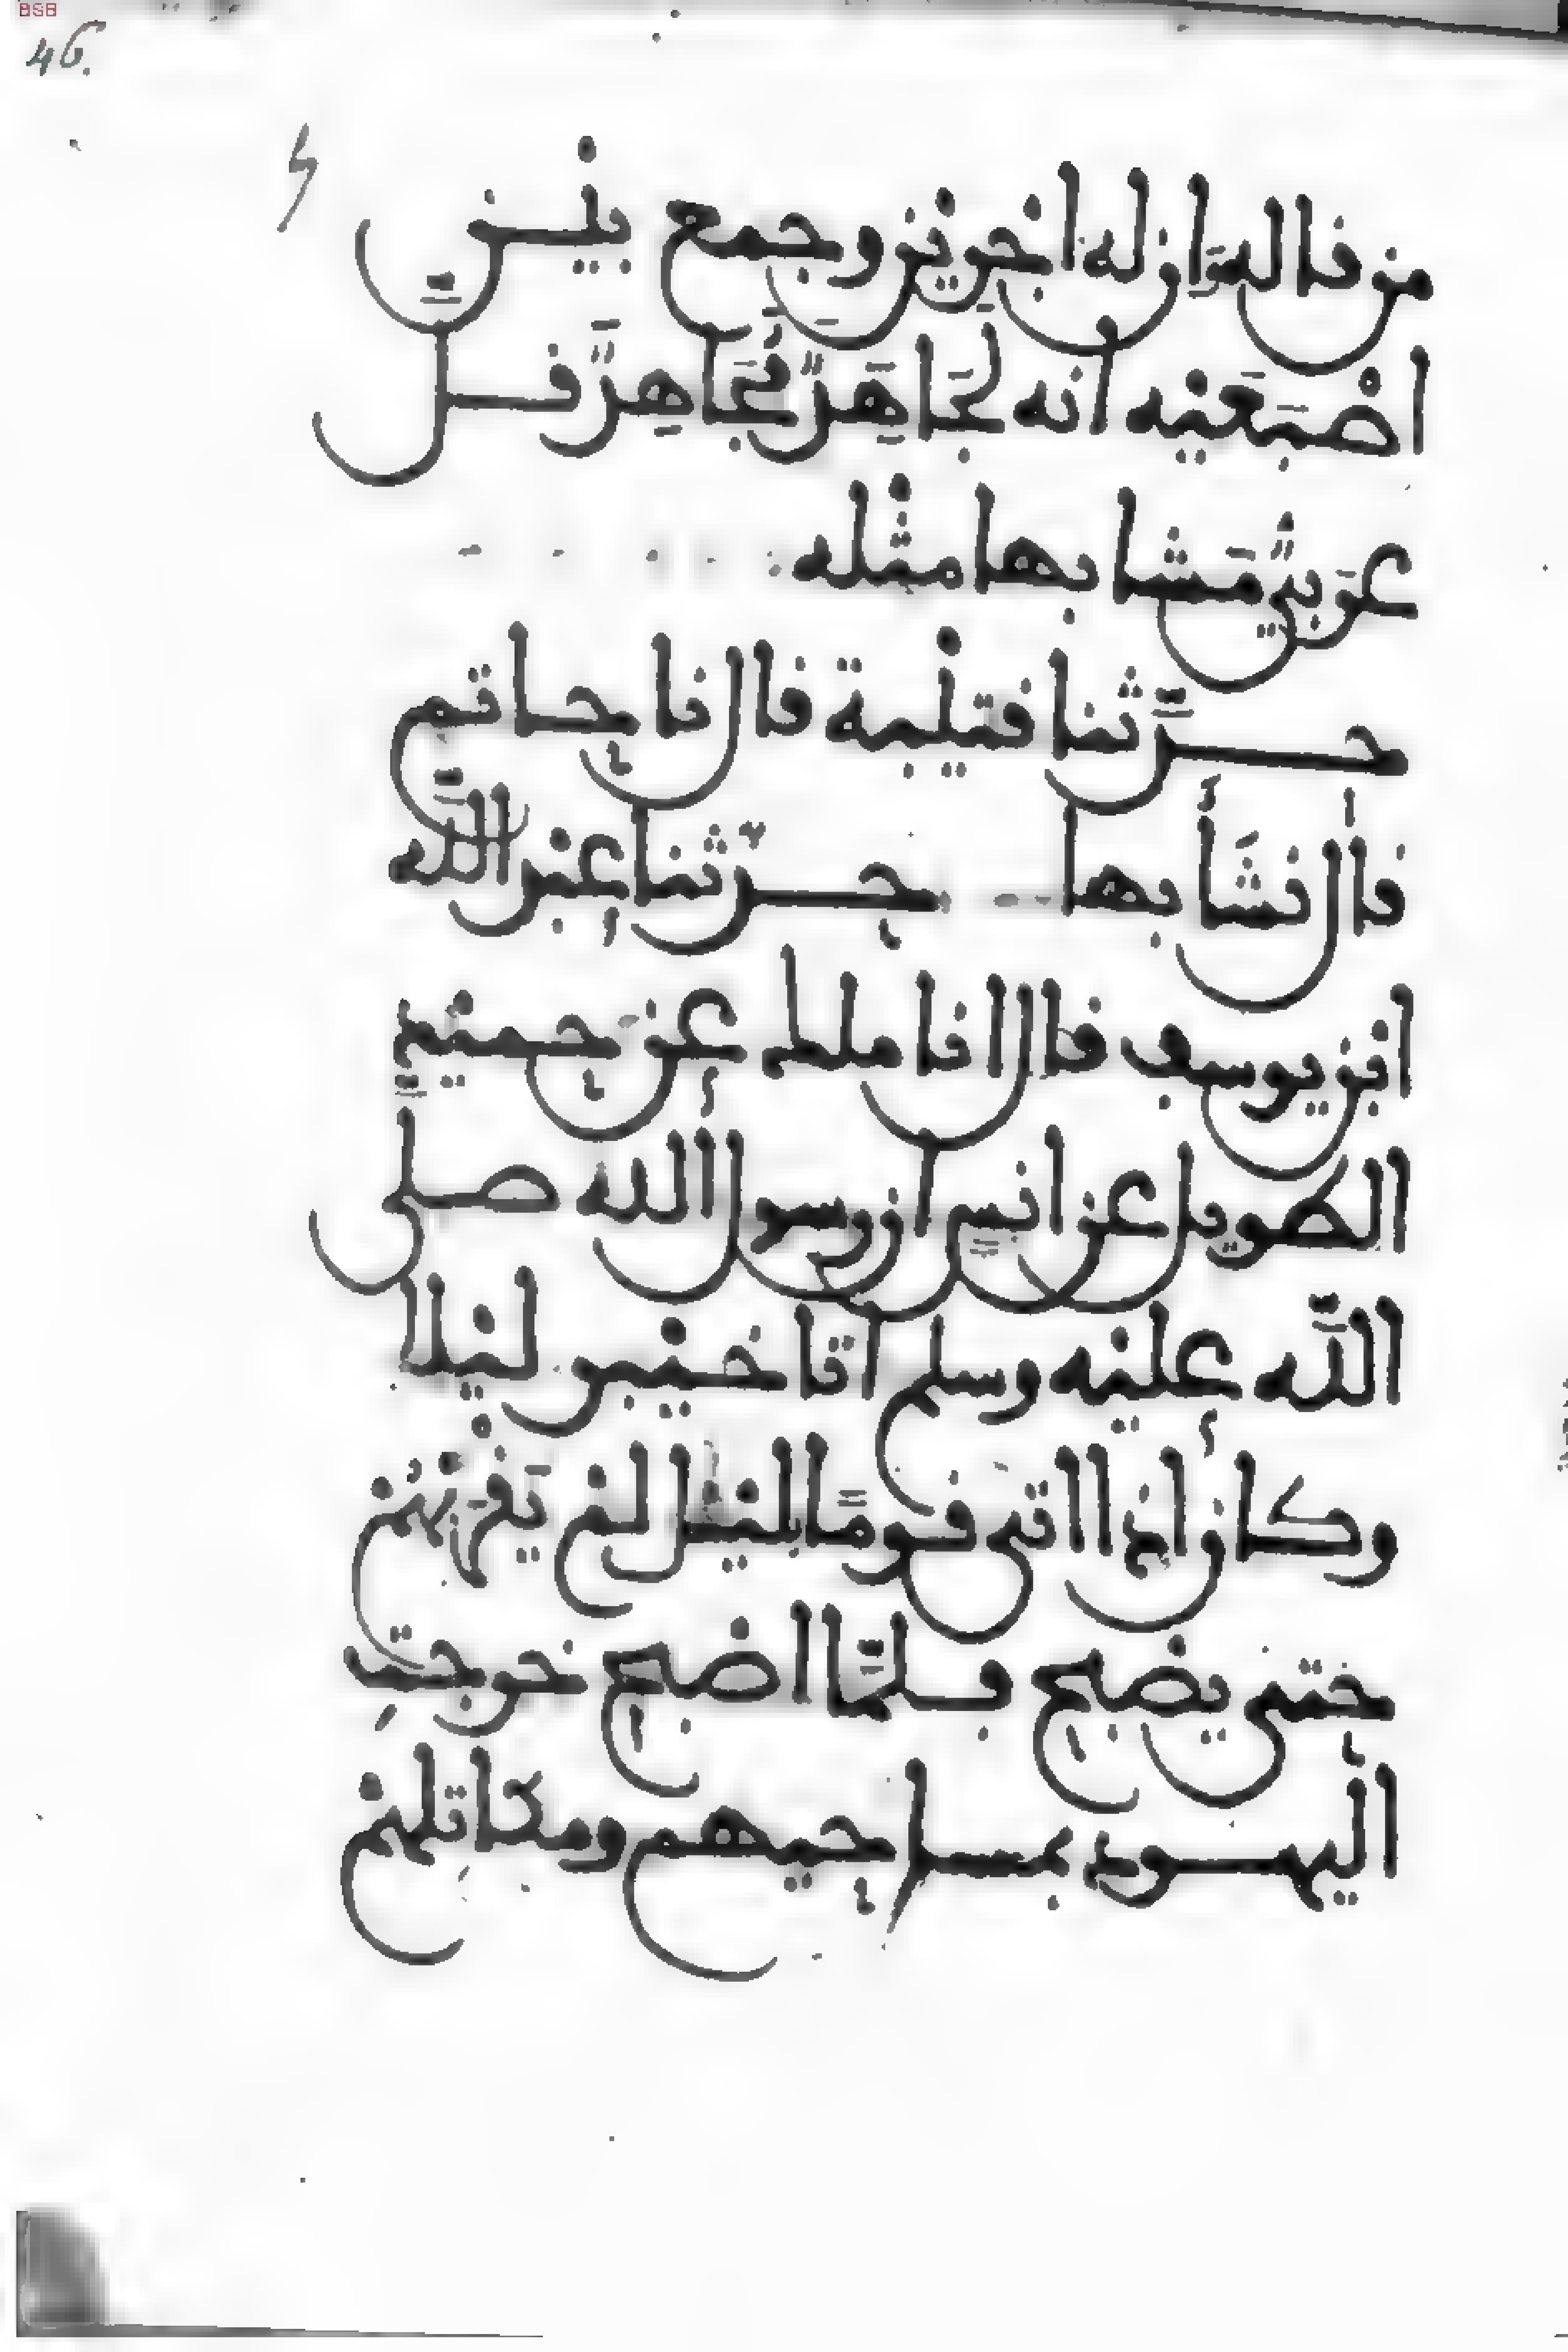 BSB
46.
من قاله وان له اجرين وجمع بين
اصْبَعَيْه انه لَجَاهَدَ مُجَاهِدٌ قل
عَرَبيٌّ مَشا بها مثْله
حدّثنا قتيْبة قال نا حاتم
قال نشَأ بها حدّثنا عبْد الله
ابْن يوسف قال انا ملك عن حميْدٍ
الطويل عن انسٍ ان رسول الله صلى
اللّه عليْه وسلم اتا خيْبر ليْلا
وكان اذا اتى قومًا بليْل لمْ يَقْربْهُمْ
حتى يصْبح فلمّا اصْبح خرجتِ
اليهود بمساحيهم ومكاتلهمْ